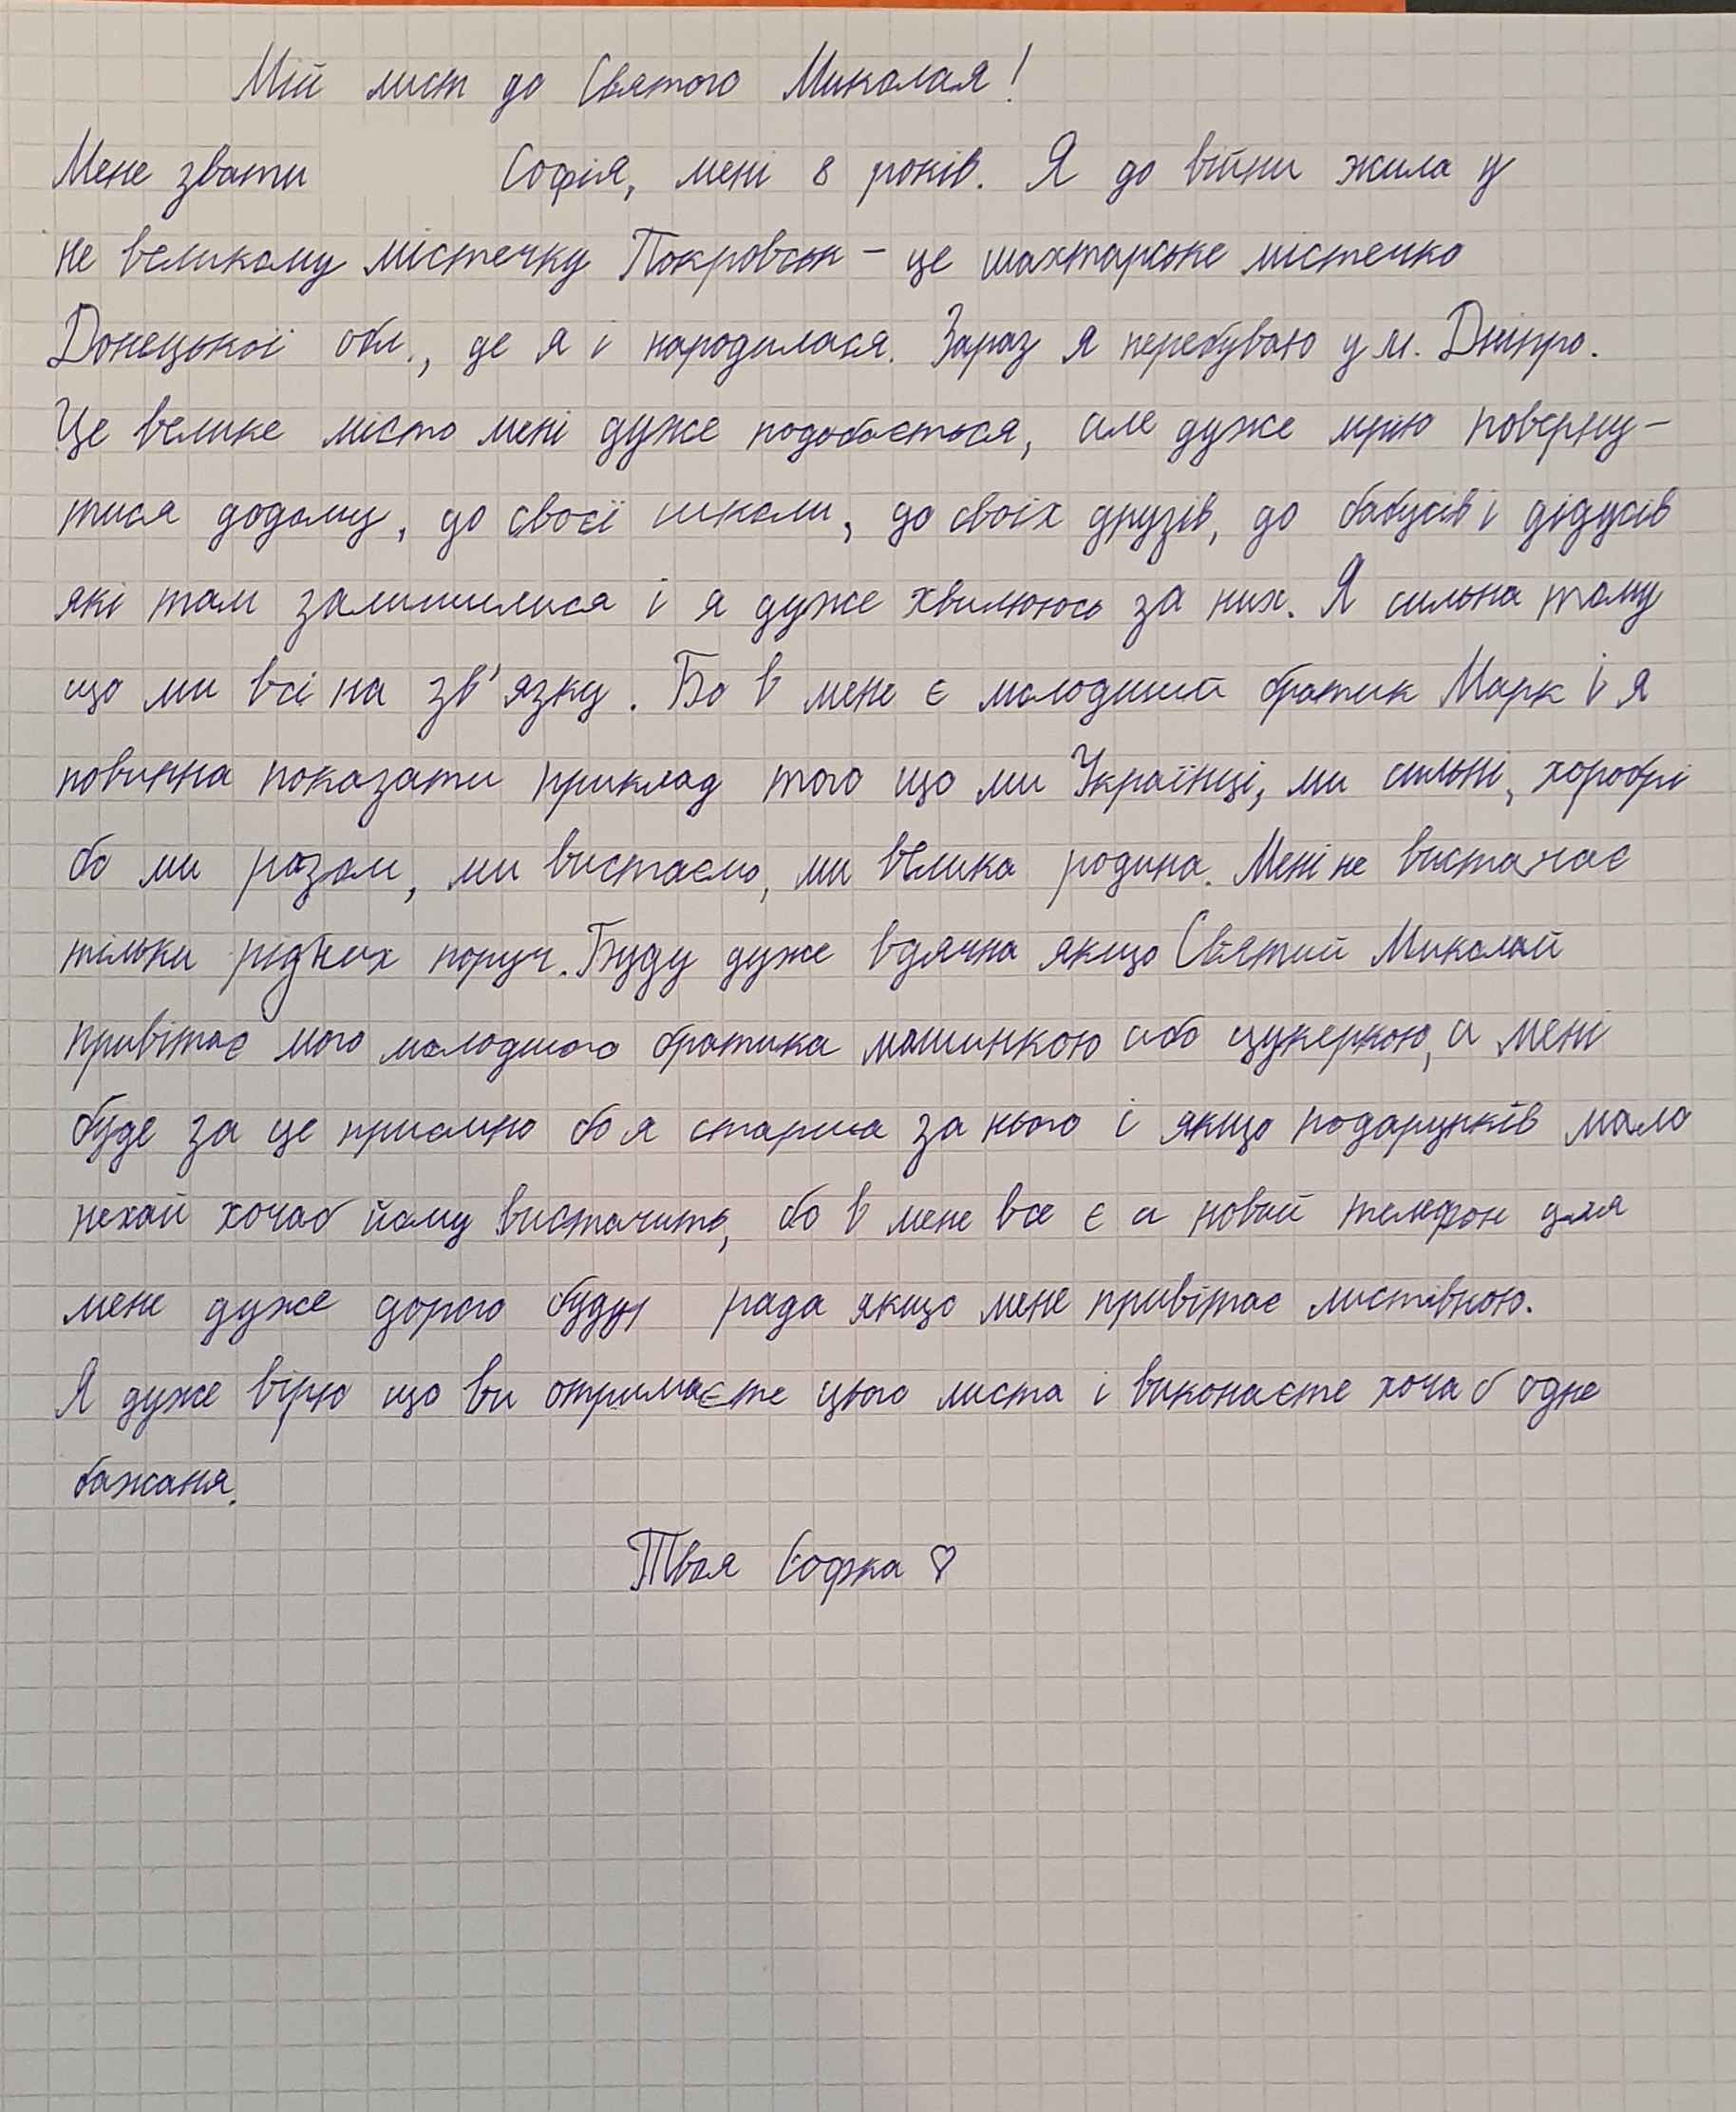 Мій лист до Святого Миколая!
Мене звати Софія, мені 8 років. Я до війни жила у
не великому містечку Покровськ – це шахтарське містечко
Донецької обл., де я і народилася. Зараз я перебуваю у м. Дніпро.
Це велике місто мені дуже подобається, але дуже мрію поверну-
тися додому, до своєї школи, до своїх друзів, до бабусів і дідусів
які там залишилися і я дуже хвилююсь за них. Я сильна тому
що ми всі на зв'язку. Бо в мене є молодший братик Марк і я
повинна показати приклад того що ми Українці, ми сильні, хоробрі
бо ми разом, ми вистаємо, ми велика родина. Мені не вистачає
тільки рідних поруч. Буду дуже вдячна якщо Святий Миколай
привітає мого молодшого братика машинкою або цукеркою, а мені
буде за це приємно бо я старша за нього і якщо подарунків мало
нехай хочаб йому вистачить, бо в мене все є а новий телефон для
мене дуже дорого буду рада якщо мене привітає листівкою.
Я дуже вірю що ви отримаєте цього листа і виконаєте хоча б одне
бажаня.
Твоя Софка ♡